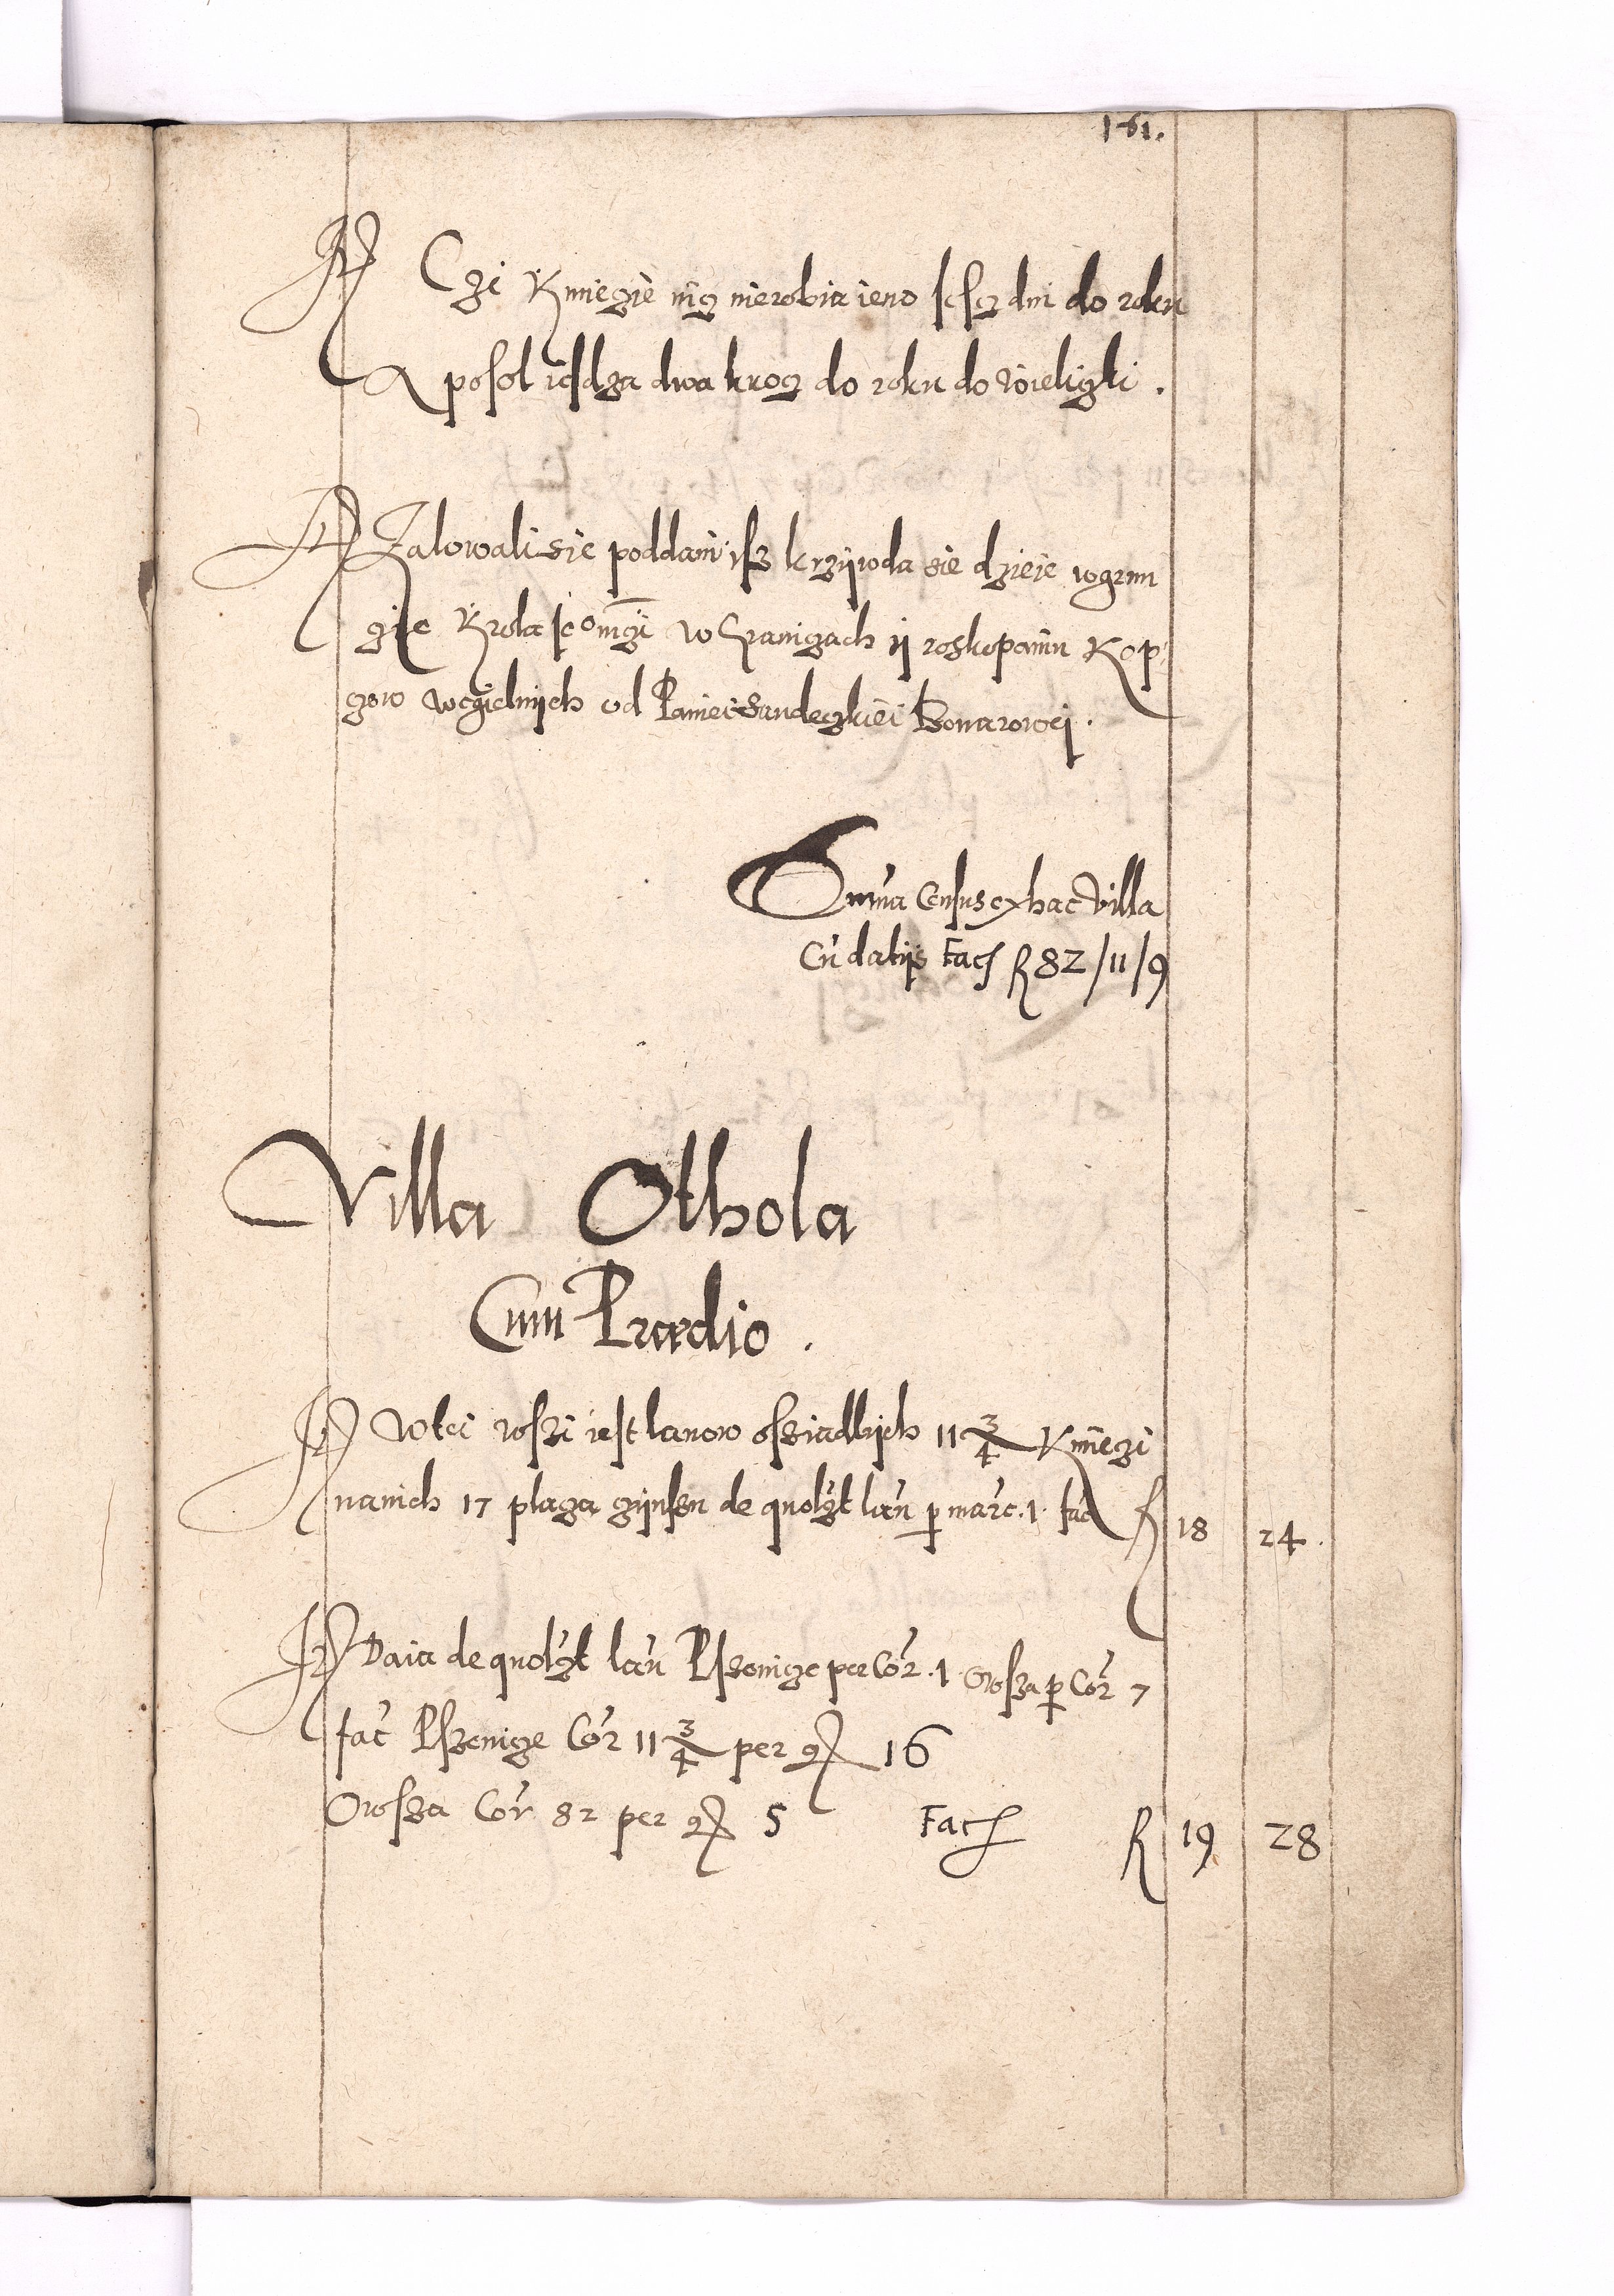 161.
It Czi Kmiegie nicz nierobia ieno sescz dni do roku
A posol iesdza dwa krocz do roku do Wieliczki.
It Zalowali sie poddani isz krzijwda sie dzieie wgrun
cie Krola Jeo mczi w Granigach ij roskopaniu Kop
czow wegielnijch od Paniei Sandeczkiei Bonarowej.
Suma Census ex hac Villa
Cu datijs Fac R 82/11/9
Villa Othola
Cum Praedio.
It Wtei wsszi iest lanow ossiadlijch 11 3/4 Kmiegi
nanich 17 placza czijnszu de quolzt lan p marc. 1. fac R 18 24.
It Daia de quolzt lan Pszenicze per Cor. 1. Owsza p Cor 7
fac Pszenicze Cor 11 3/4 per gr 16
Owssa Cor 82 per gr 5 Fac R 19 28